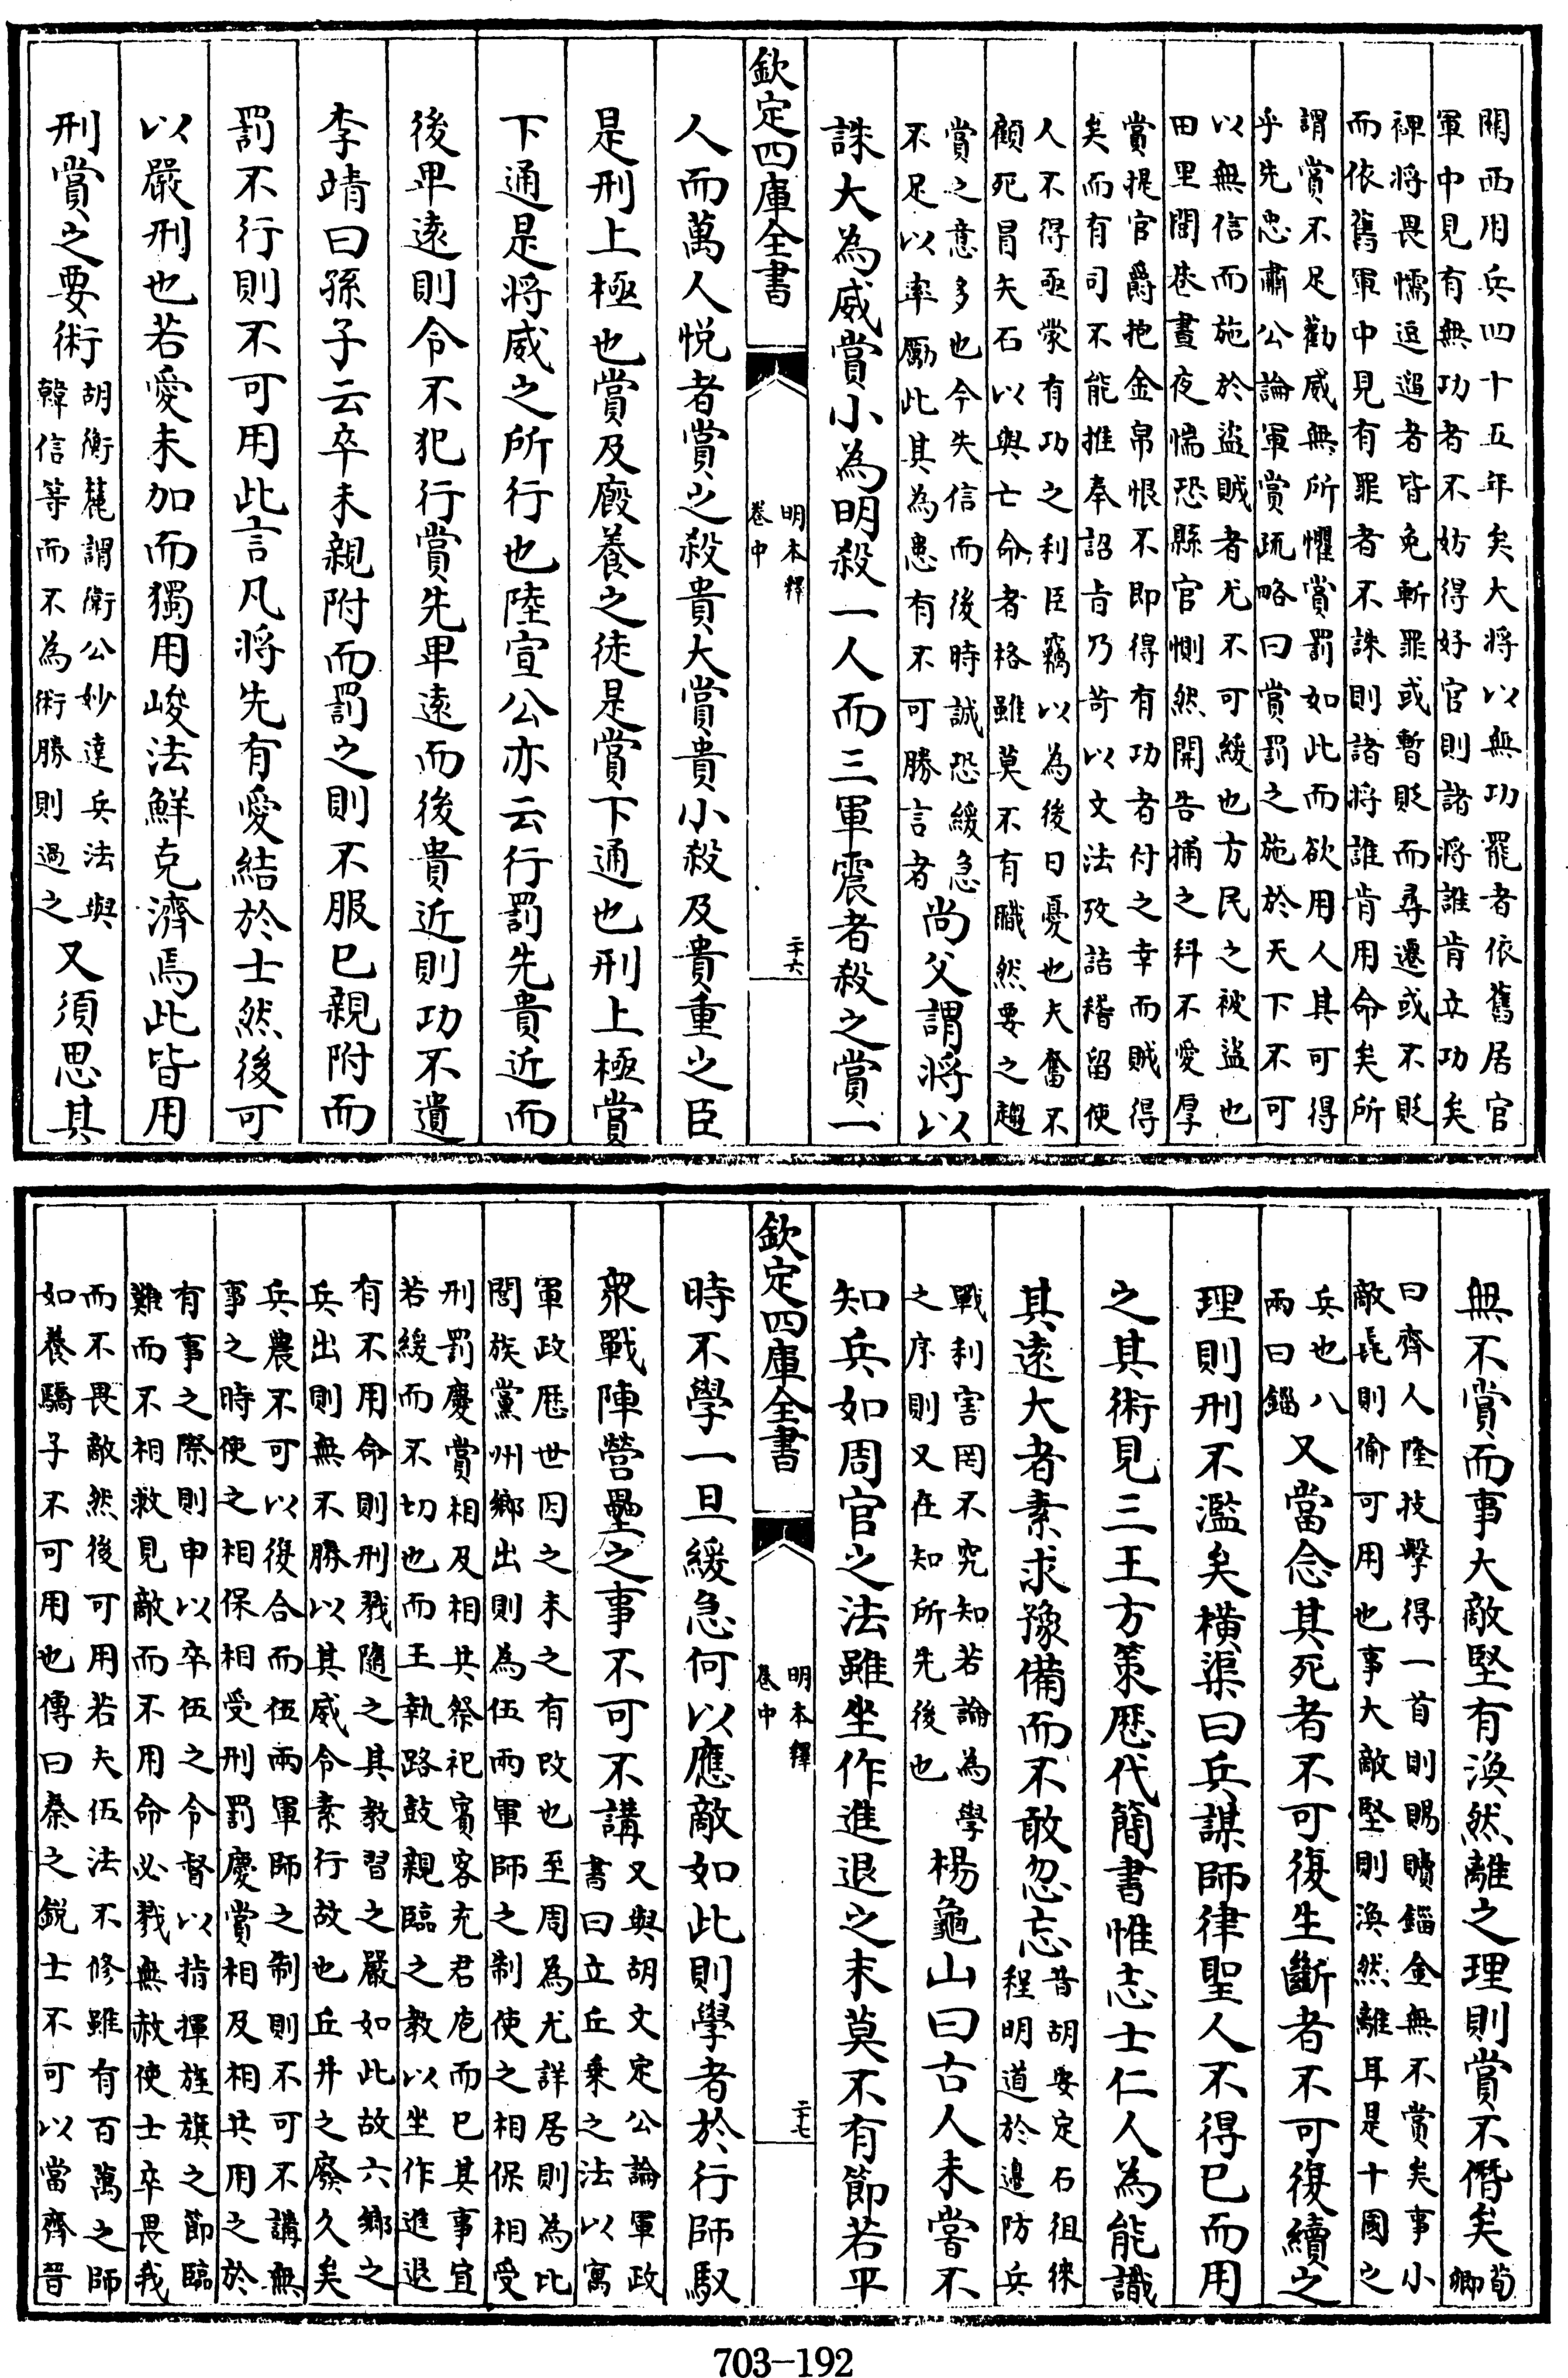 關西用兵四十五年矣大將以無功罷者依舊居官
軍中見有無功者不妨得好官則諸將誰肯立功矣
裨將畏懦逗遛者皆免斬罪或暫貶而尋遷或不貶
而依舊軍中見有罪者不誅則諸將誰肯用命矣所
謂賞不足勸威無所懼賞罰如此而欲用人其可得
乎先忠肅公論軍賞疏略曰賞罰之施於天下不可
以無信而施於盜賊者尤不可緩也方民之被盜也
田里閭巷晝夜惴恐縣官惻然開告捕之科不愛厚
賞捉官爵抱金帛恨不即得有功者付之幸而賊得
矣而有司不能推奉詔旨乃苛以文法攷詰稽留使
人不得亟蒙有功之利臣竊以為後日憂也夫奮不
顧死冒矢石以與亡命者格雖莫不有職然要之趨
賞之意多也今失信而後時誠恐緩急
不足以率勵此其為患有不可勝言者
尚父謂將以
誅大為威賞小為明殺一人而三軍震者殺之賞一
欽定四庫全書
明本釋
卷中
二十六
人而萬人悅者賞之殺貴大賞貴小殺及貴重之臣
是刑上極也賞及廄養之徒是賞下通也刑上極賞
下通是將威之所行也陸宣公亦云行罰先貴近而
後卑遠則令不犯行賞先卑遠而後貴近則功不遺
李靖曰孫子云卒未親附而罰之則不服已親附而
罰不行則不可用此言凡將先有愛結於士然後可
以嚴刑也若愛未加而獨用峻法鮮克濟焉此皆用
刑賞之要術
胡衡麓謂衛公妙達兵法與
韓信等而不為術勝則過之
又須思其
無不賞而事大敵堅有渙然離之理則賞不僭矣
荀
卿
曰齊人隆技擊得一首則賜贖錙金無不賞矣事小
敵毳則偷可用也事大敵堅則渙然離耳是亡國之
兵也八
兩曰錙
又當念其死者不可復生斷者不可復續之
理則刑不濫矣橫渠曰兵謀師律聖人不得已而用
之其術見三王方策歷代簡書惟志士仁人為能識
其遠大者素求豫備而不敢忽忘
昔胡安定石徂徠
程明道於邊防兵
戰利害罔不究知若論為學
之序則又在知所先後也
楊龜山曰古人未嘗不
知兵如周官之法雖坐作進退之末莫不有節若平
欽定四庫全書
明本釋
卷中
二十七
時不學一旦緩急何以應敵如此則學者於行師馭
衆戰陣營壘之事不可不講
又與胡文定公論軍政
書曰立丘乘之法以寓
軍政歷世因之未之有改也至周為尤詳居則為比
閭族黨州鄉出則為伍兩軍師之制使之相保相受
刑罰慶賞相及相共祭祀賓客充君庖而已其事宜
若緩而不切也而王執路鼓親臨之教以坐作進退
有不用命則刑戮隨之其教習之嚴如此故六鄉之
兵出則無不勝以其威令素行故也丘井之廢久矣
兵農不可以復合而伍兩軍師之制則不可不講無
事之時使之相保相受刑罰慶賞相及相共用之於
有事之際則申以卒伍之令督以指揮旌旗之節臨
難而不相救見敵而不用命必戮無赦使士卒畏我
而不畏敵然後可用若夫伍法不修雖有百萬之師
如養驕子不可用也傳曰秦之銳士不可以當齊晉
703-192